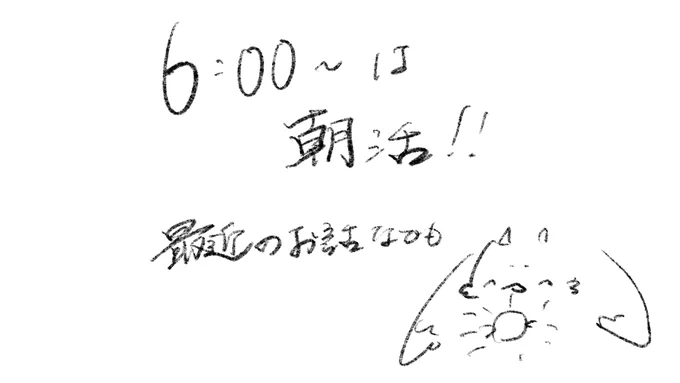 6:00~は
朝活!!
最近のお話なども